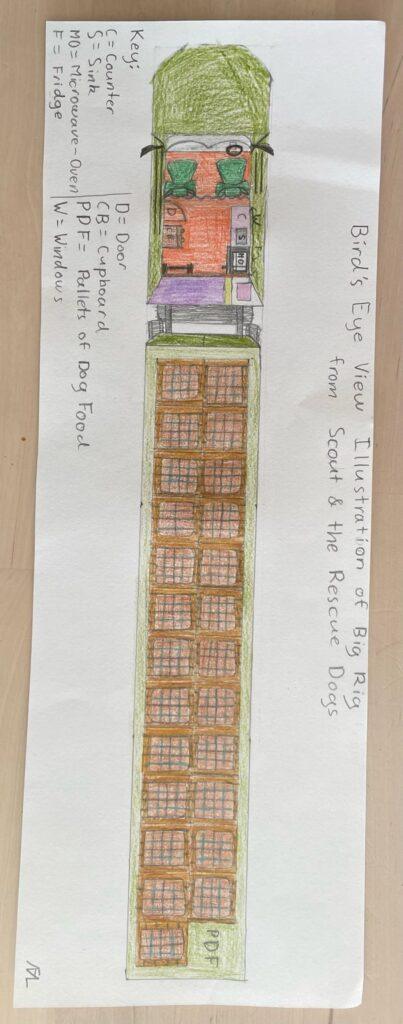 Bird's Eye View Illustration of Big Rig
from Scout & the Rescue Dogs
W
C
S
MO
D
PDF
Key:
C = Counter | D = Door
S = Sink | CB = Cupboard
MO = Microwave-Oven | PDF = Pallets of Dog Food
F = Fridge | W = Windows